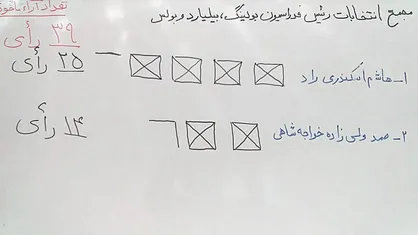 مجمع انتخابات رئیس فدراسیون بولینگ، بیلیارد و بولس
تعداد آراء مأخوذه
۳۹ رأی
۱- هاشم اسکندری راد
۲۵ رأی
۲- صمد ولی زاده خواجه شاهی
۱۴ رأی